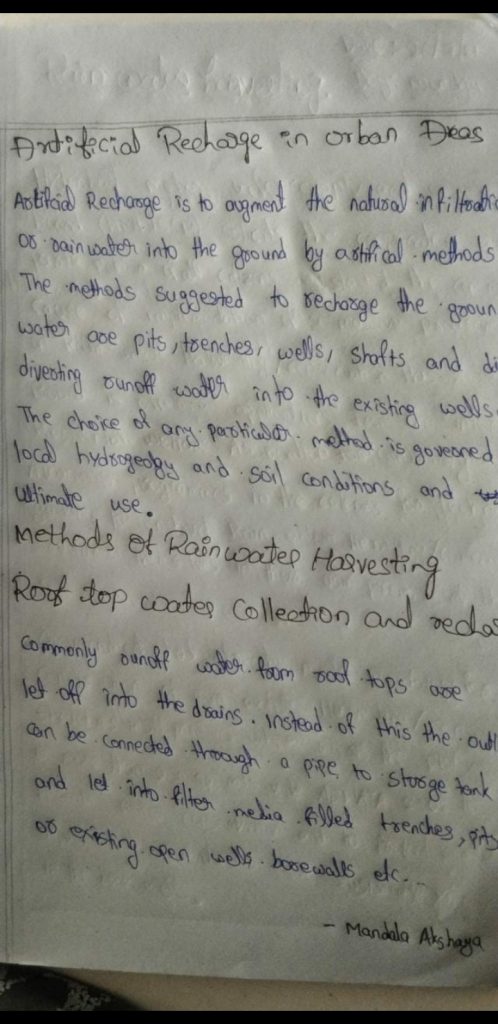 Artificial Recharge in orban Areas
Artificial Recharge is to augment the natural infiltratio
or rain water into the ground by artifical methods
The methods suggested to recharge the groun
water are pits, trenches, wells, shafts and di
diverting runoff water into the existing wells.
The choice of any particular method is governed
local hydrogeology and soil conditions and
ultimate use.
Methods of Rain water Harvesting
Roof top water Collection and recha
Commonly runoff water from roof tops are
let off into the drains. instead of this the outl
can be connected through a pipe to storge tank
and let into filter media filled trenches, pits
or existing open wells. borewalls etc...
- Mandala Akshaya